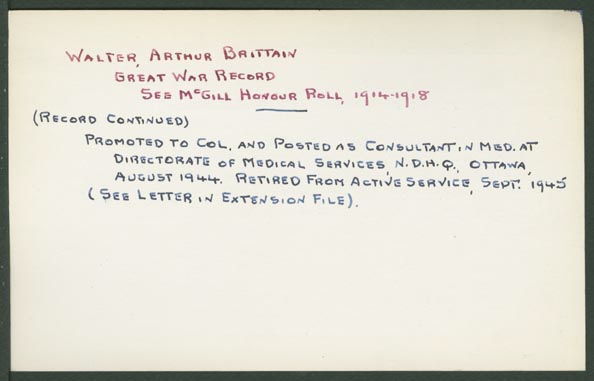 WALTER, ARTHUR BRITTAIN
GREAT WAR RECORD
SEE McGILL HONOUR ROLL, 1914-1918
(RECORD CONTINUED)
PROMOTED TO COL. AND POSTED AS CONSULTANT IN MED. AT
DIRECTORATE OF MEDICAL SERVICES, N.D.H.Q., OTTAWA,
AUGUST 1944. RETIRED FROM ACTIVE SERVICE, SEPT. 1945
(SEE LETTER IN EXTENSION FILE).